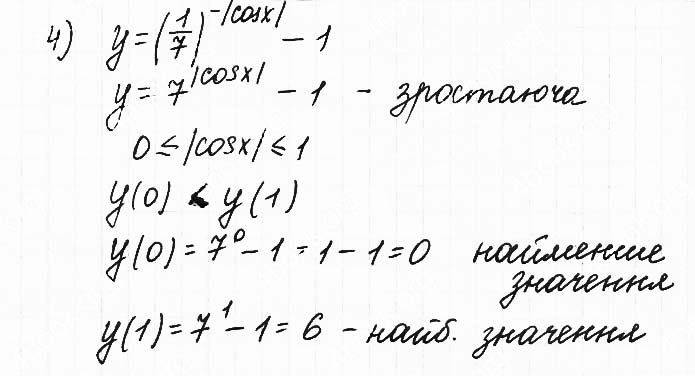 4) y = (1/7)^{-|cosx|} - 1
y = 7^{|cosx|} - 1 - зростаюча
0 ≤ |cosx| ≤ 1
y(0) < y(1)
y(0) = 7^0 - 1 = 1 - 1 = 0 найменше
значення
y(1) = 7^1 - 1 = 6 - найб. значення